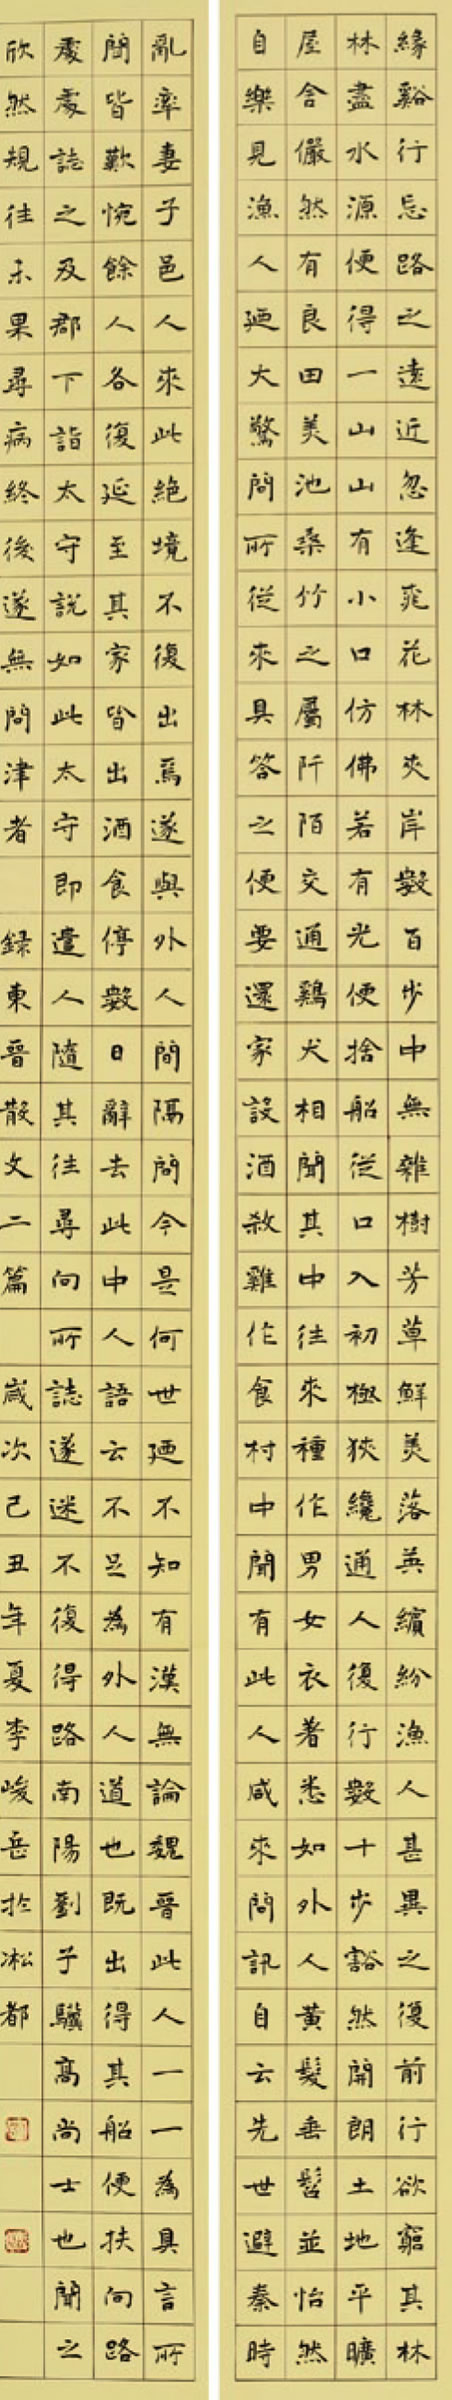 緣谿行忘路之遠近忽逢桃花林夾岸數百步中無雜樹芳草鮮美落英繽紛漁人甚異之復前行欲窮其林
林盡水源便得一山山有小口仿佛若有光便捨船從口入初極狹纔通人復行數十步豁然開朗土地平曠
屋舍儼然有良田美池桑竹之屬阡陌交通鷄犬相聞其中往來種作男女衣著悉如外人黃髮垂髫並怡然
自樂見漁人廼大驚問所從來具答之便要還家設酒殺雞作食村中聞有此人咸來問訊自云先世避秦時
亂率妻子邑人來此絕境不復出焉遂與外人間隔問今是何世廼不知有漢無論魏晉此人一一為具言所
聞皆歎惋餘人各復延至其家皆出酒食停數日辭去此中人語云不足為外人道也既出得其船便扶向路
處處誌之及郡下詣太守說如此太守即遣人隨其往尋向所誌遂迷不復得路南陽劉子驥高尚士也聞之
欣然規往未果尋病終後遂無問津者 錄東晉散文二篇 歲次己丑年夏李峻岳於凇都